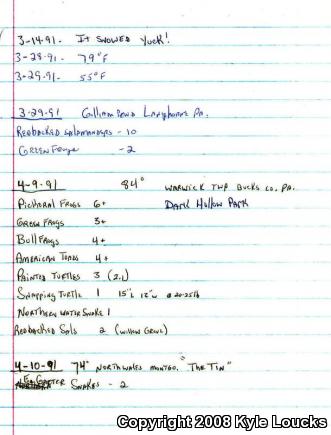 3-14-91 - It SNOWED Yuck!
3-28-91 - 79°F
3-29-91 - 55°F
3-29-91 Langhorne PA.
Redbacked Salamanders - 10
Green Frogs - 2
4-9-91 84° WARWICK TWP BUCKS CO. PA.
Pickeral Frogs 6+ Dark Hollow Park
Green Frogs 3+
Bull Frogs 4+
American Toads 4+
Painted Turtles 3 (2.1)
Snapping Turtle 1 15"L 12"W @ 20-25lb
Northern Water Snake 1
Redbacked Sals 2 (Willow Grove)
4-10-91 74° North Wales Montgo. "The Tin"
Garter Snakes - 2
Copyright 2008 Kyle Loucks